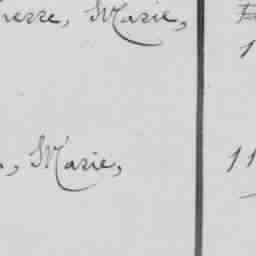 Pierre, Marie,
Marie, 11